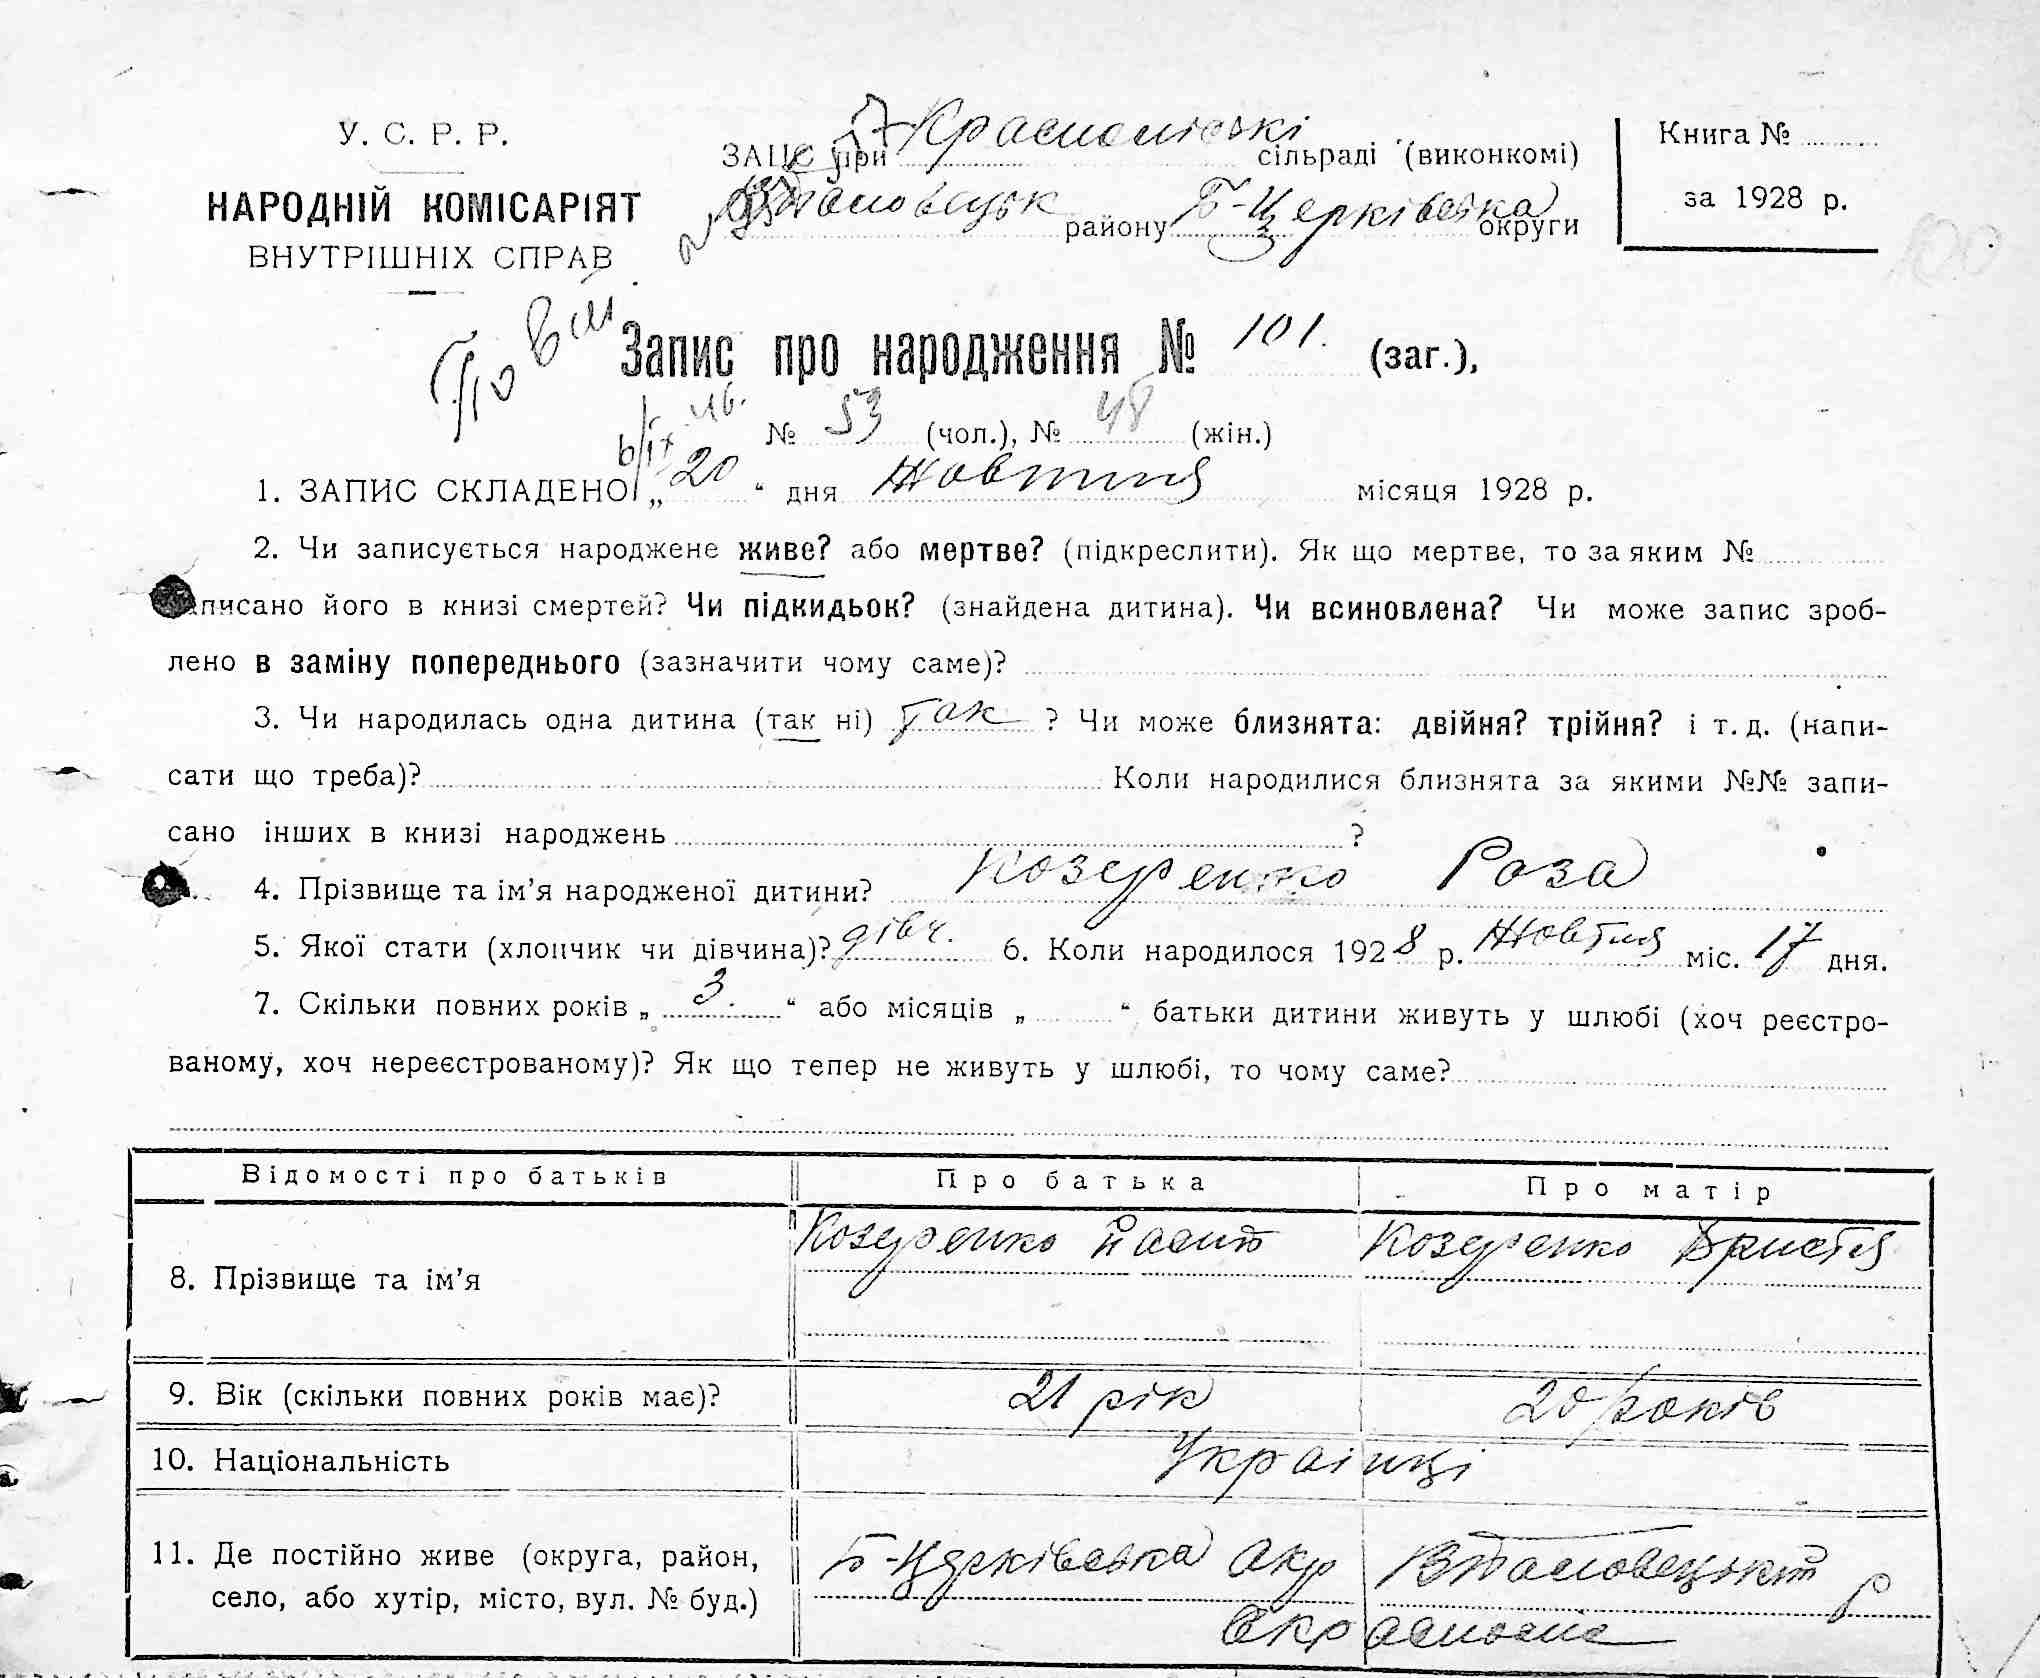 У. С. Р. Р.
НАРОДНІЙ КОМІСАРІЯТ
ВНУТРІШНІХ СПРАВ
ЗАЦС при сільраді (виконкомі)
району Б-Церківська округи
Книга №
за 1928 р.
Запис про народження № 101. (заг.),
№ 53 (чол.), № 48 (жін.)
1. ЗАПИС СКЛАДЕНО „20“ дня Жовтня місяця 1928 р.
2. Чи записується народжене живе? або мертве? (підкреслити). Як що мертве, то за яким №
аписано його в книзі смертей? Чи підкидьок? (знайдена дитина). Чи всиновлена? Чи може запис зроб-
лено в заміну попереднього (зазначити чому саме)?
3. Чи народилась одна дитина (так ні) так ? Чи може близнята: двійня? трійня? і т. д. (напи-
сати що треба)? Коли народилися близнята за якими №№ запи-
сано інших в книзі народжень ?
4. Прізвище та ім’я народженої дитини? Козуренко Роза
5. Якої стати (хлопчик чи дівчина)? дівч. 6. Коли народилося 1928 р. Жовтня міс. 17 дня.
7. Скільки повних років „ 3. “ або місяців „ “ батьки дитини живуть у шлюбі (хоч реєстро-
ваному, хоч нереєстрованому)? Як що тепер не живуть у шлюбі, то чому саме?
Відомості про батьків Про батька Про матір
8. Прізвище та ім’я Козуренко Козуренко
9. Вік (скільки повних років має)? 21 рік 20 років
10. Національність Українці
11. Де постійно живе (округа, район, Б-Церківська окр
село, або хутір, місто, вул. № буд.)